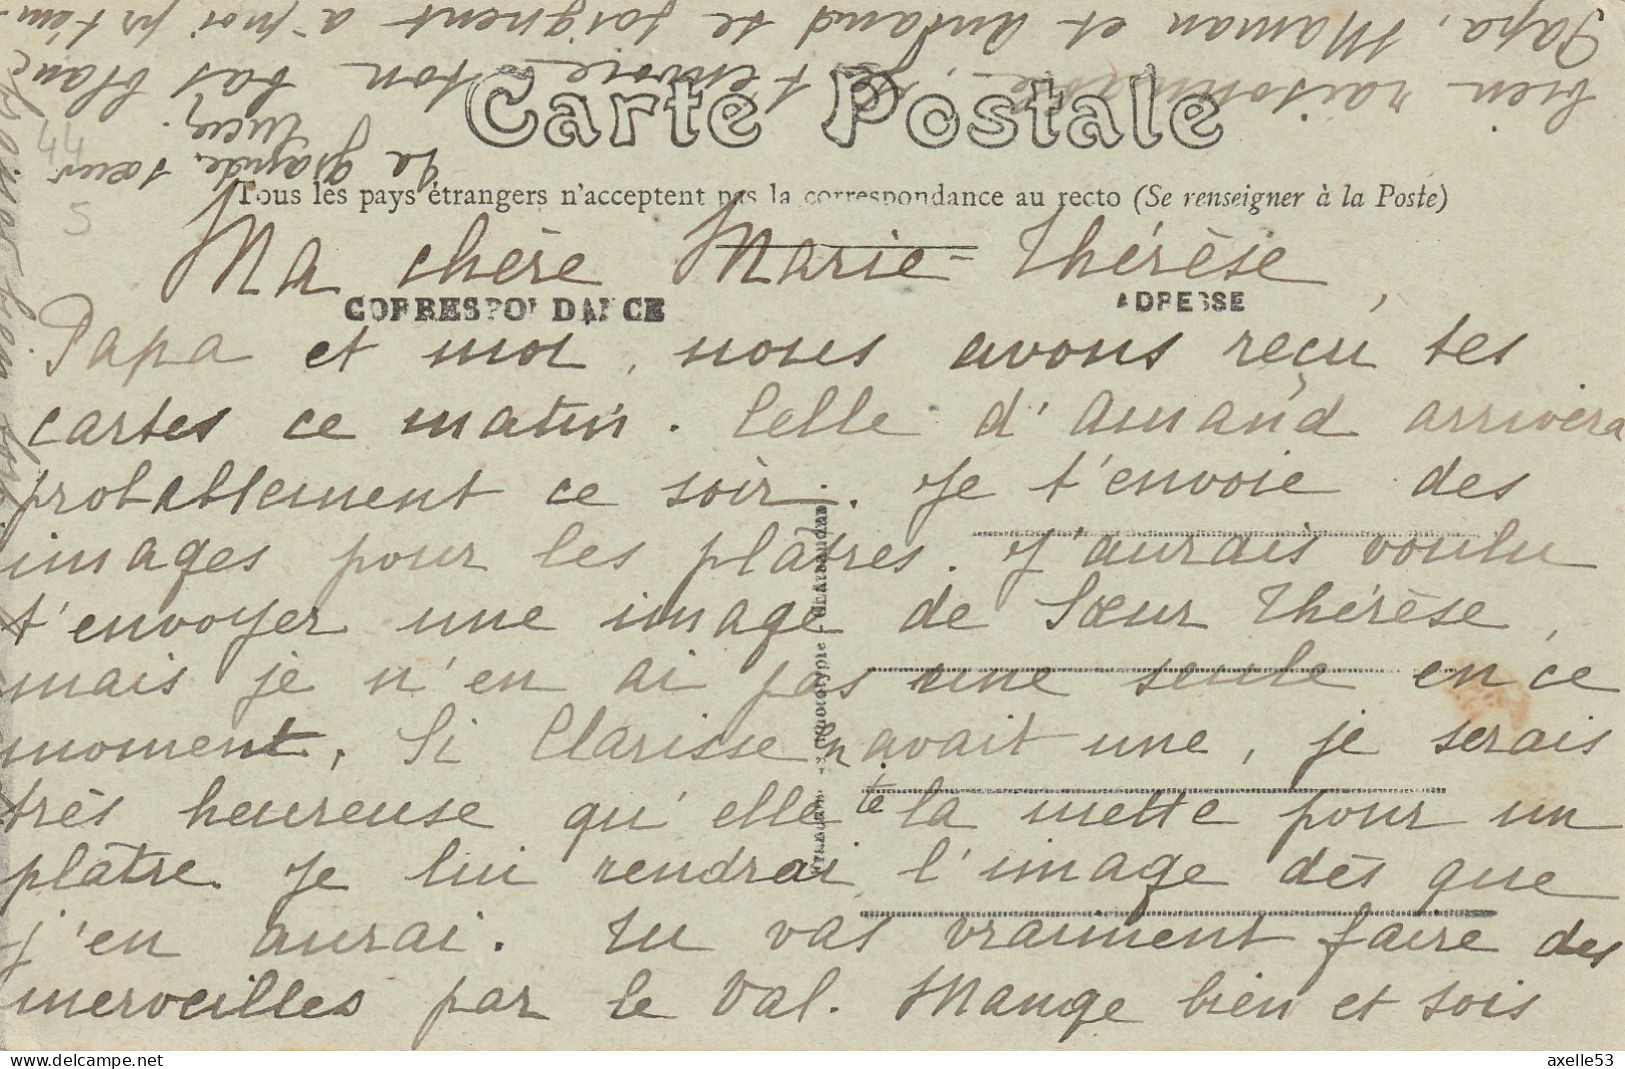 Carte Postale
Tous les pays étrangers n'acceptent pas la correspondance au recto (Se renseigner à la Poste)
CORRESPONDANCE
ADRESSE
Ma chère Marie-Thérèse,
Papa et moi, nous avons reçu tes
cartes ce matin. Celle d'Amand arrivera
probablement ce soir. Je t'envoie des
images pour les plâtres. J'aurais voulu
t'envoyer une image de Sœur Thérèse,
mais je n'en ai pas une seule en ce
moment. Si Clarisse n'avait une, je serais
très heureuse qu'elle te la mette pour un
plâtre. Je lui rendrai l'image dès que
j'en aurai. Tu vas vraiment faire des
merveilles par le Val. Mange bien et sois
bien raisonnable, je t'envoie ton bas blanc
Papa, Maman et Amand se joignent à moi pr t'em
La grande sœur
Lucie
44
5
axelle53